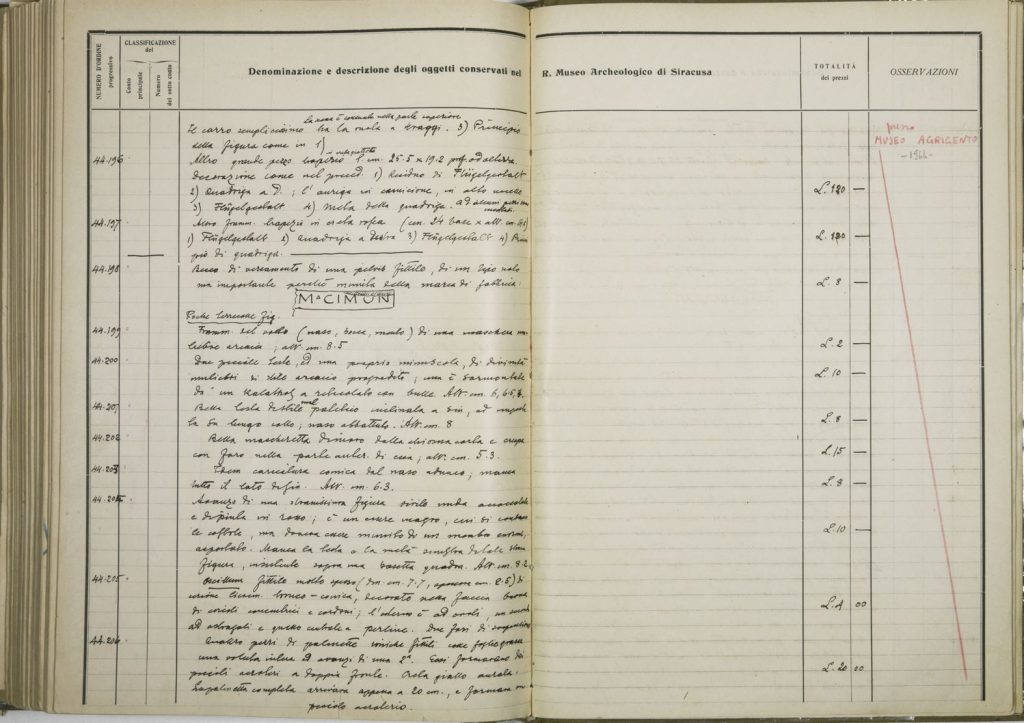 NUMERO D'ORDINE progressivo
CLASSIFICAZIONE del
Conto principale
Numero del sotto conto
Denominazione e descrizione degli oggetti conservati nel R. Museo Archeologico di Siracusa
TOTALITÀ dei prezzi
OSSERVAZIONI
presso
MUSEO AGRIGENTO
-1966-
la zona è contenuta nella parte superiore
Il carro semplicissimo ha la ruota a 4 raggi. 3) Principio
della figura come in 1)
44.196
Altro grande pezzo trapezio 1 cm. 25.5 x 19.2 prof. ed altezza.
decorazione come nel preced. 1) Residuo di Flügelgestalt
2) Quadriga a D.; l'auriga in camicione, in alto uccello
L. 120 —
3) Flügelgestalt 4) Metà della quadriga.
44.197
Altro framm. trapezio in creta rossa (cm. 24 base x alt. cm.
1) Flügelgestalt 2) Quadriga a destra 3) Flügelgestalt 4) Prin
L. 120 —
pio di quadriga.
44.198
Becco di versamento di una pelvis fittile, di un tipo noto
ma importante perché munita della marca di fabbrica:
L. 3 —
M·CIMON
Poche terrecotte fig.
44.199
Framm. del volto (naso, bocca, mento) di una maschera mu
liebre arcaica; alt. cm. 8.5
L. 2 —
44.200
Due piccole teste, ed una proprio minuscola, di divinità
muliebri di stile arcaico progredito; una è sormontata
L. 10 —
da un Kalathos a reticolato con bulle. Alt. cm. 6, 6.5,
44.201
Bella testa di stile policleteo inclinata a sin,
la su lungo collo; naso abbattuto. Alt. cm. 8
L. 8 —
44.202
Bella mascheretta di moro dalla chioma corta e crespa
con foro nella parte anter. di essa; alt. cm. 5.3.
L. 15 —
44.203
Idem caricatura comica dal naso adunco; manca
tutto il lato Alt. cm. 6.3.
L. 8 —
44.204
Avanzo di una stranissima figura virile nuda accoccolata
e dipinta in rosso; è un essere magro,
le costole, ma doveva essere munito di un membro enorme,
L. 10 —
asportato. Manca la testa e la metà sinistra
figura, insistente sopra una basetta quadra. Alt. cm. 8.2
44.205
Oscillum fittile molto spesso (dm. cm. 7.7, spessore cm. 2.5) di
sezione tronco-conica, decorato nella faccia buona
di circoli concentrici e cordoni; l'esterno è ad ovoli,
L. 4 00
ad astragali e quello centrale a perline. Due fori di sospensione
44.206
Quattro pezzi di palmette fittili con foglie grasse
una voluta intera ed avanzi di una 2ª. Essi formavano dei
piccoli acroteri a doppia fronte. Creta giallo aurata.
L. 20 00
La palmetta completa arrivava appena a 20 cm., e formava un
piccolo acroterio.